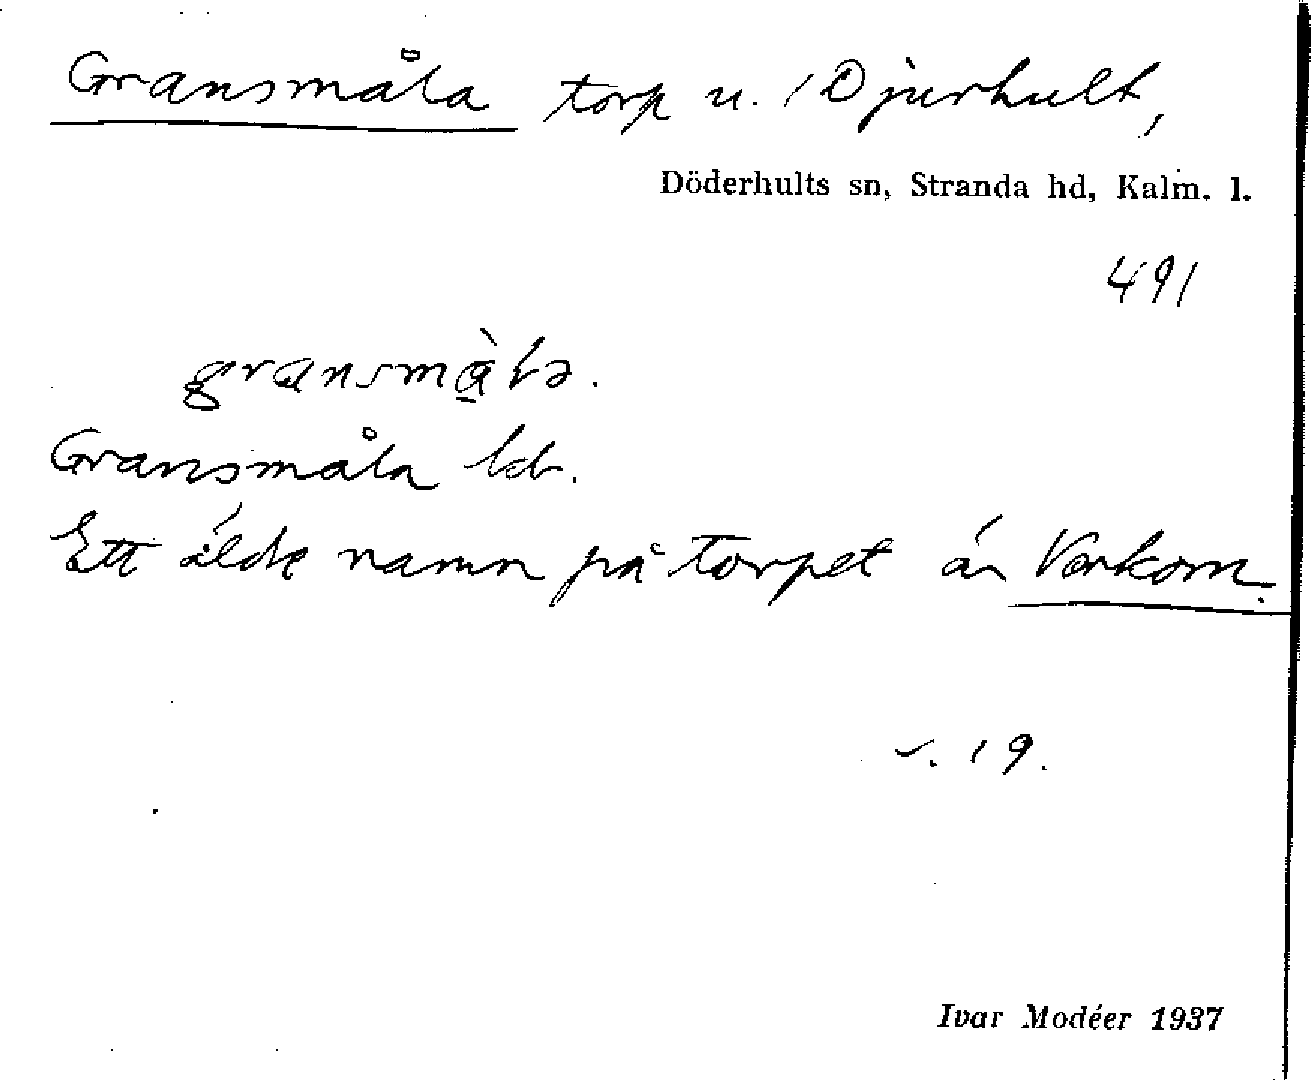 Gransmåla torp u. Djurhult,
Döderhults sn, Stranda hd, Kalm. l.
491
gransmå̀lə.
Gransmåla ldb.
Ett äldre namn på torpet är Verkorn.
s. 19.
Ivar Modéer 1937